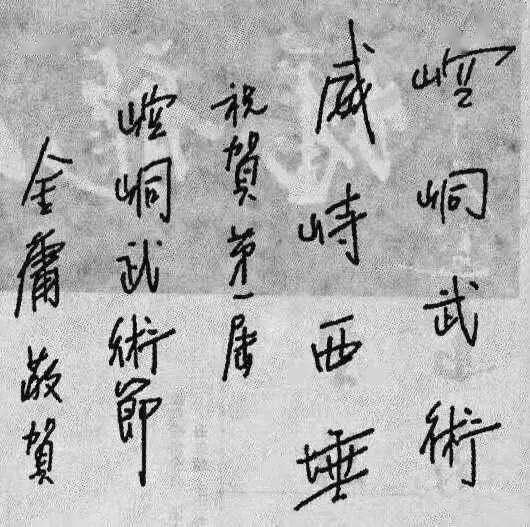 崆峒武術
威峙西埵
祝賀第一届
崆峒武術節
金庸敬賀